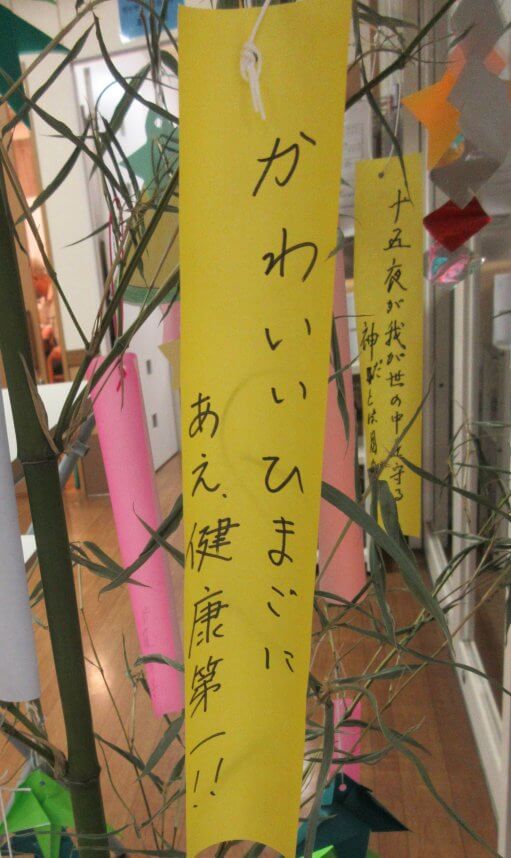 かわいいひまごに
あえ、健康第一!!
十五夜が我が世の中を守る
神影とは月